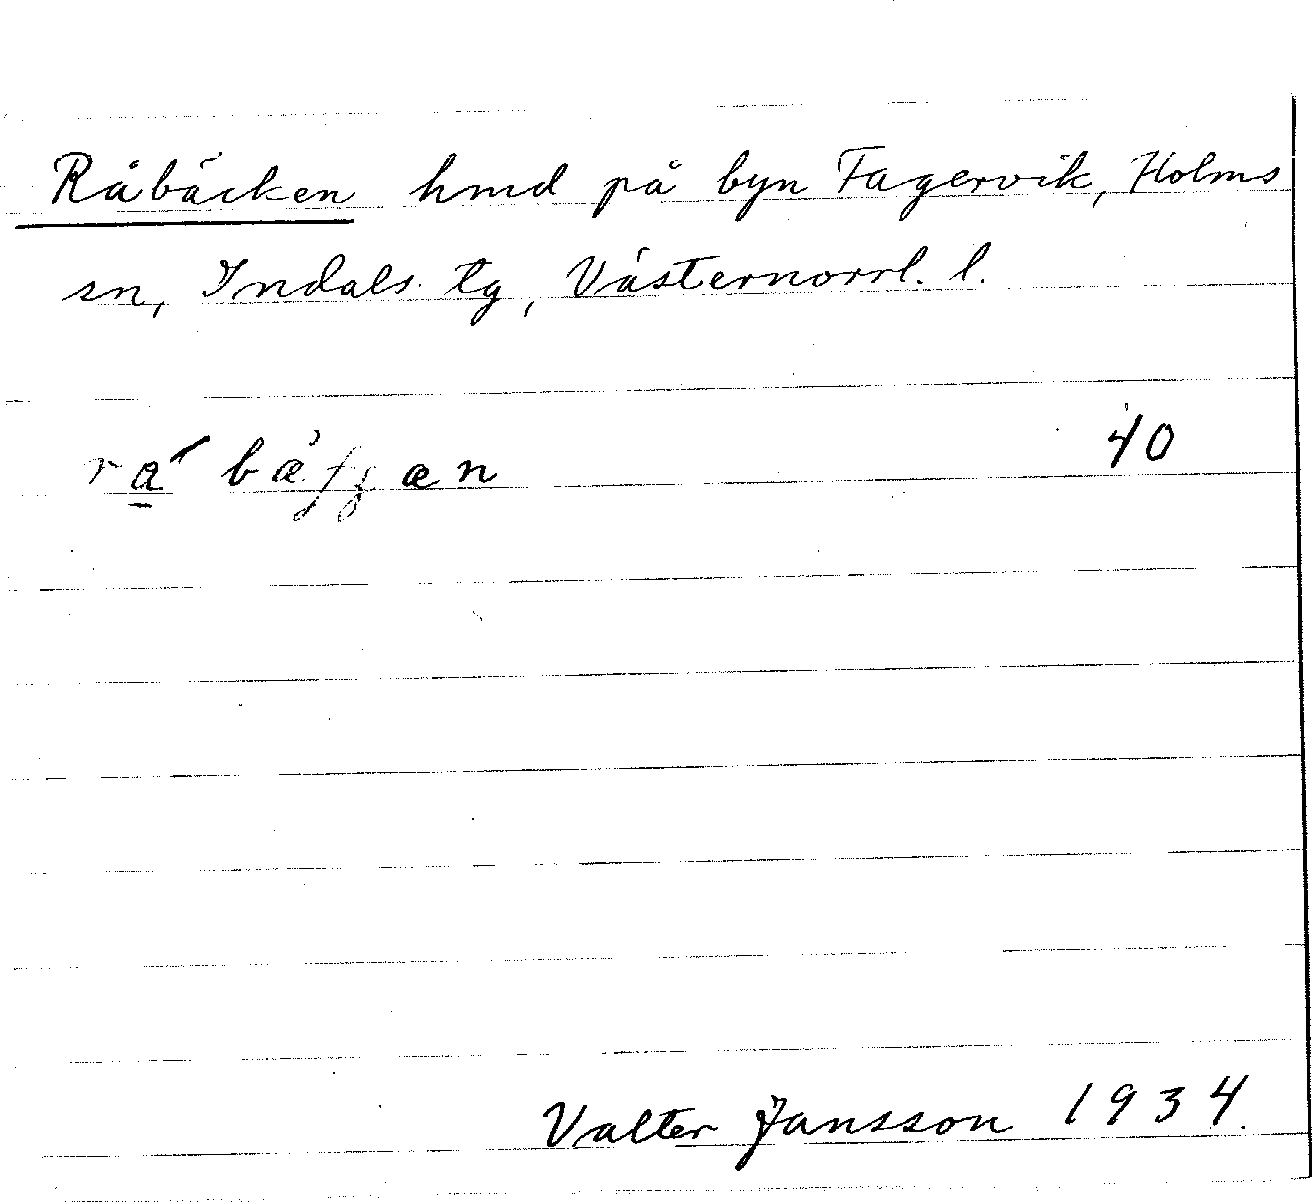 Råbäcken hmd på byn Fagervik, Holms
sn, Indals tg, Västernorrl. l.
40
Valter Jansson 1934.